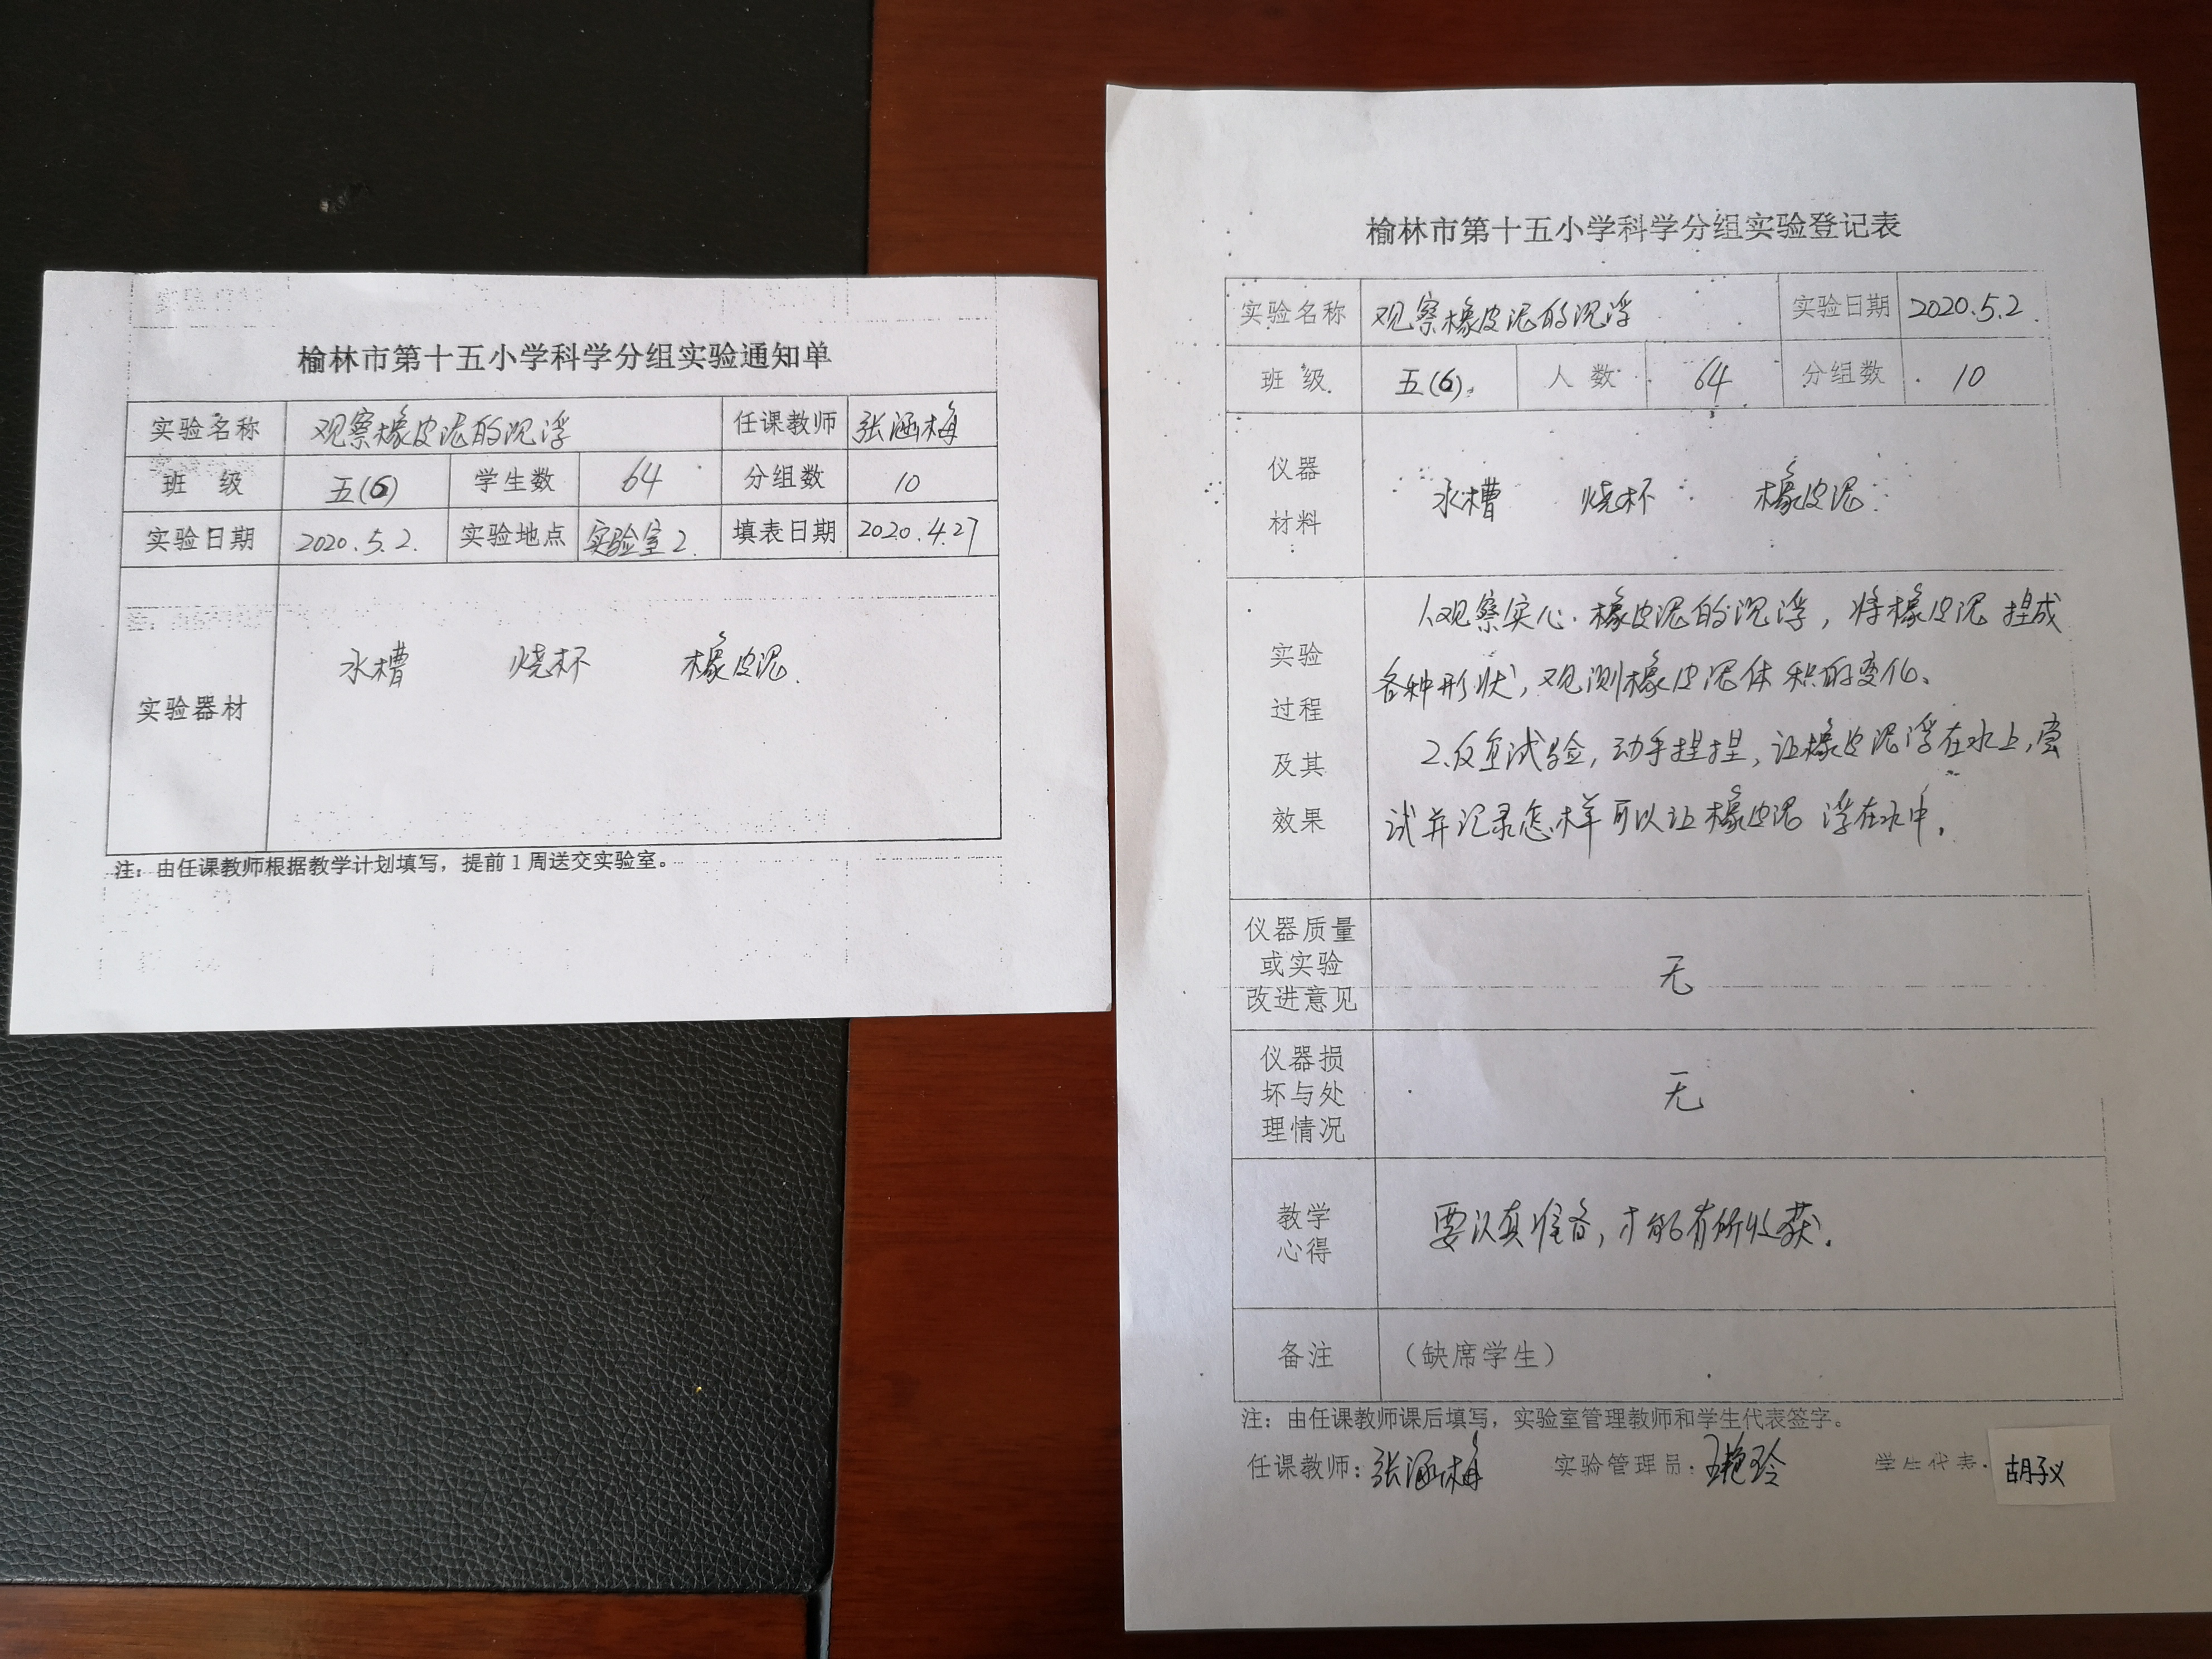 榆林市第十五小学科学分组实验通知单
实验名称 观察橡皮泥的沉浮 任课教师 张涵梅
班 级 五(6) 学生数 64 分组数 10
实验日期 2020.5.2. 实验地点 实验室2. 填表日期 2020.4.27
实验器材 水槽 烧杯 橡皮泥.
注：由任课教师根据教学计划填写，提前1周送交实验室。
榆林市第十五小学科学分组实验登记表
实验名称 观察橡皮泥的沉浮 实验日期 2020.5.2.
班 级 五(6). 人 数 64 分组数 10
仪器
材料
水槽 烧杯 橡皮泥.
实验
过程
及其
效果
1、观察实心橡皮泥的沉浮，将橡皮泥捏成
各种形状，观测橡皮泥体积的变化、
2、反复试验，动手捏捏，让橡皮泥浮在水上，尝
试并记录怎样可以让橡皮泥浮在水中.
仪器质量
或实验
改进意见
无
仪器损
坏与处
理情况
无
教学
心得
要认真准备，才能有所收获.
备注 （缺席学生）
注：由任课教师课后填写，实验室管理教师和学生代表签字。
任课教师：张涵梅 实验管理员：王艳玲 学生代表： 胡子义